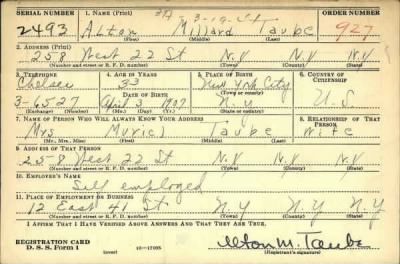 SERIAL NUMBER 1. NAME (Print) ORDER NUMBER
2493 Alton Millard Taube 927
(First) (Middle) (Last)
2. ADDRESS (Print)
258 West 22 St N.Y N.Y
(Number and street or R. F. D. number) (Town) (County) (State)
3. TELEPHONE 4. AGE IN YEARS 5. PLACE OF BIRTH 6. COUNTRY OF CITIZENSHIP
Chelsea 33 New York City
DATE OF BIRTH (Town or county)
3-6527 April 3 1907 N.Y U.S.
(Exchange) (Number) (Mo.) (Day) (Yr.) (State or country)
7. NAME OF PERSON WHO WILL ALWAYS KNOW YOUR ADDRESS 8. RELATIONSHIP OF THAT PERSON
Mrs Muriel Taube Wife
(Mr., Mrs., Miss) (First) (Middle) (Last)
9. ADDRESS OF THAT PERSON
258 West 22 St N.Y N.Y
(Number and street or R. F. D. number) (Town) (County) (State)
10. EMPLOYER'S NAME
Self employed
11. PLACE OF EMPLOYMENT OR BUSINESS
12 East 41 St N.Y N.Y N.Y
(Number and street or R. F. D. number) (Town) (County) (State)
I AFFIRM THAT I HAVE VERIFIED ABOVE ANSWERS AND THAT THEY ARE TRUE.
REGISTRATION CARD
D. S. S. Form 1 (over) 16-17105 Alton M. Taube
(Registrant's signature)